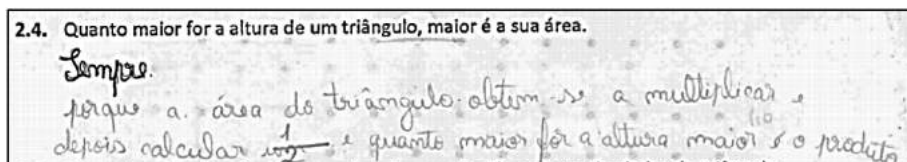 2.4. Quanto maior for a altura de um triângulo, maior é a sua área.
Sempre.
porque a área do triângulo obtem-se a multiplicar e
depois calcular 1/2 e quanto maior for a altura maior é o produto